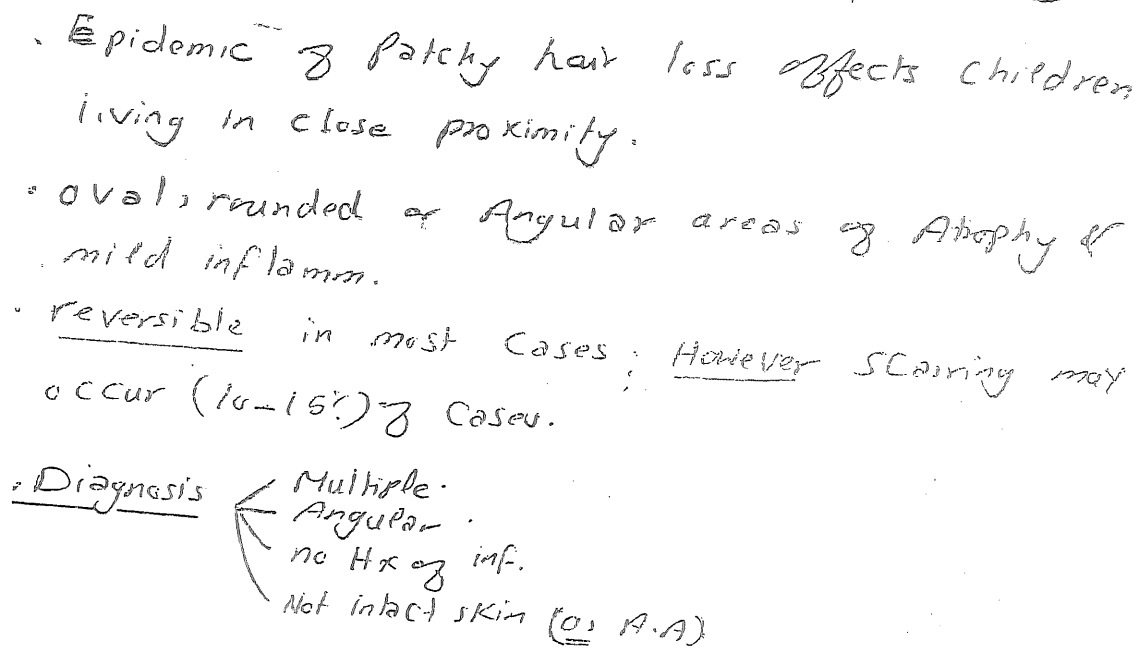 . Epidemic of Patchy hair loss affects children
living in close proximity.
. oval, rounded or Angular areas of Atrophy &
mild inflamm.
. reversible in most cases; However scarring may
occur (10-15%) of cases.
. Diagnosis
Multiple.
Angular.
no Hx of inf.
Not intact skin (as A.A)